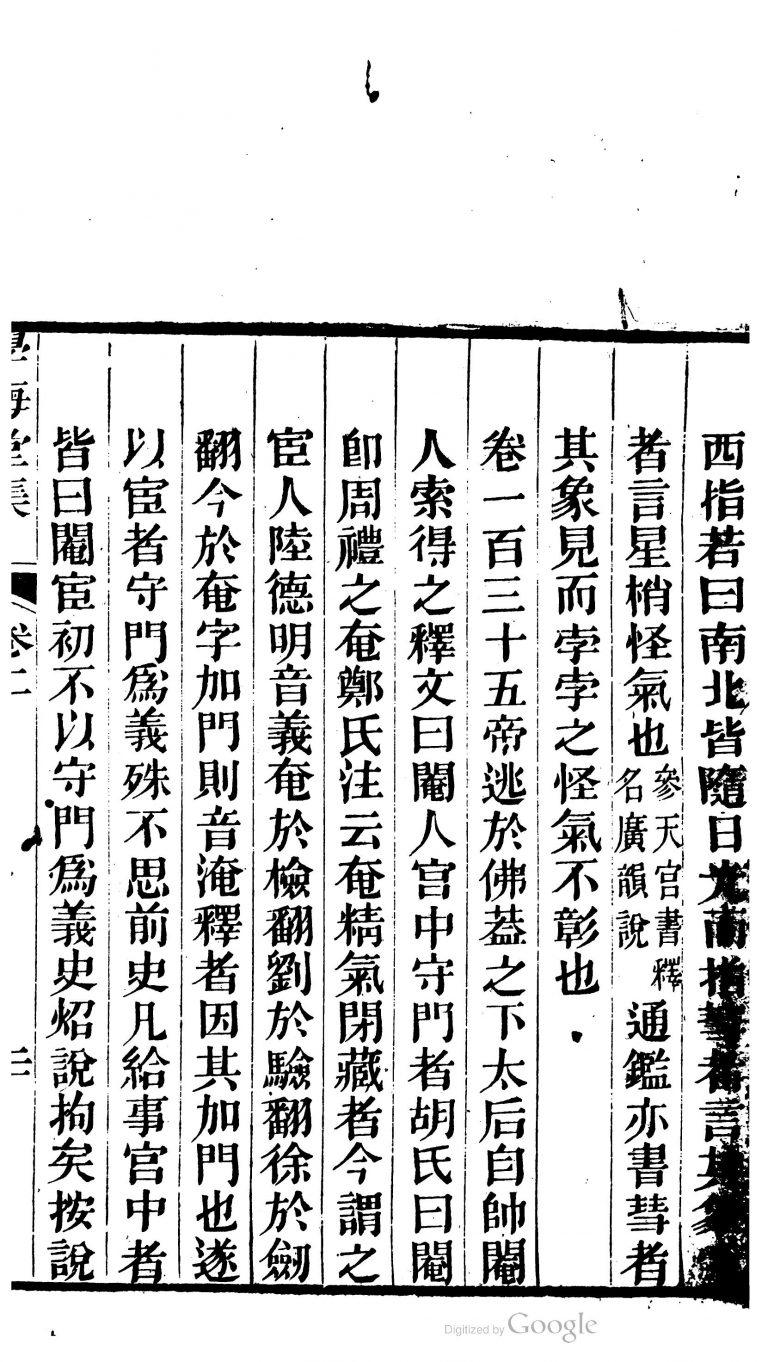 西指若曰南北皆隨日光南指彗者言其象
者言星梢怪氣也參天官書釋名廣韻說通鑑亦書彗者
其象見而孛孛之怪氣不彰也
卷一百三十五帝逃於佛葢之下太后自帥閹
人索得之釋文曰閹人宮中守門者胡氏曰閹
卽周禮之奄鄭氏注云奄精氣閉藏者今謂之
宦人陸德明音義奄於檢翻劉於驗翻徐於劒
翻今於奄字加門則音淹釋者因其加門也遂
以宦者守門爲義殊不思前史凡給事宮中者
皆曰閹宦初不以守門爲義史炤說拘矣按說
學海堂集
卷二
二
Digitized by Google